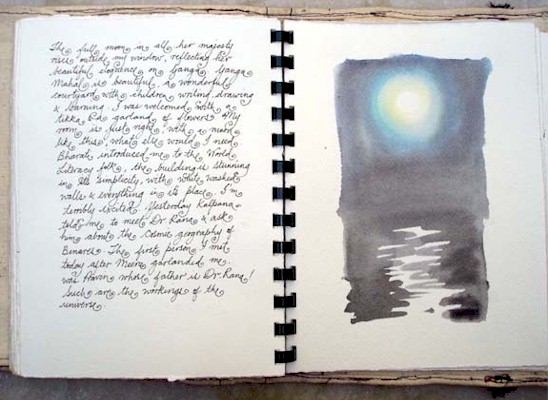 The full moon in all her majesty
rises outside my window, reflecting her
beautiful eloquence on Ganga. Ganga
Mahal is beautiful, a wonderful
courtyard with children writing, drawing
& learning. I was welcomed with a
tikka & a garland of flowers. My
room is just right, with a moon
like this, what else would I need.
Bharat introduced me to the World
Literacy folk, the building is stunning
in its simplicity, with white washed
walls & everything in its place. I'm
terribly excited. Yesterday Kalpana
told me to meet Dr Rana & ask
him about the cosmic geography of
Benares. The first person I met
today after Meera garlanded me
was Pravin whose father is Dr. Rana!
Such are the workings of the
universe.